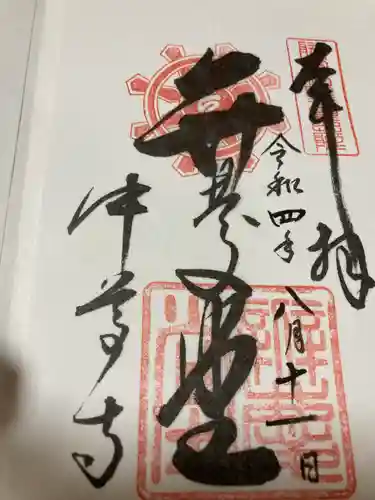 奉拝
令和四年八月十一日
弁慶堂
中尊寺